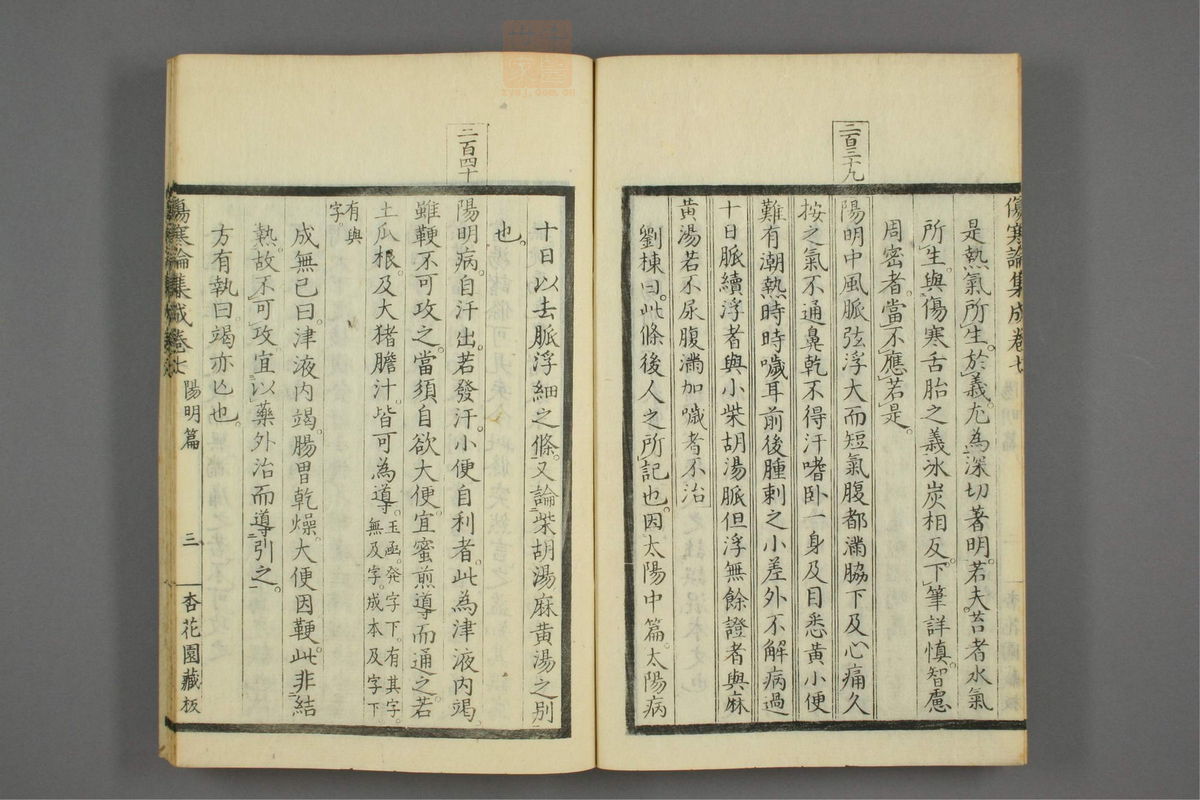 傷寒論集成卷七
是熱氣所生。於義尤為深切著明。若夫苔者水氣
所生。與傷寒舌胎之義氷炭相反。下筆詳慎。智慮
周密者。當不應若是。
二百三十九
陽明中風脈弦浮大而短氣腹都滿脇下及心痛久
按之氣不通鼻乾不得汗嗜卧一身及目悉黄小便
難有潮熱時時噦耳前後腫刺之小差外不解病過
十日脈續浮者與小柴胡湯脈但浮無餘證者與麻
黄湯若不尿腹滿加噦者不治
劉棟曰。此條後人之所記也。因太陽中篇。太陽病
十日以去脈浮細之條。又論柴胡湯麻黄湯之別
也。
二百四十
陽明病。自汗出。若發汗。小便自利者。此為津液内竭。
雖鞕不可攻之。當須自欲大便。宜蜜煎導而通之。若
土瓜根。及大猪膽汁。皆可為導。玉函。発字下。有其字。無及字。成本及字下。
有與字。
成無已曰。津液内竭。腸胃乾燥。大便因鞕。此非結
熱。故不可攻。宜以藥外治而導引之。
方有執曰。竭亦亾也。
傷寒論集成卷七 陽明篇 三 杏花園藏板